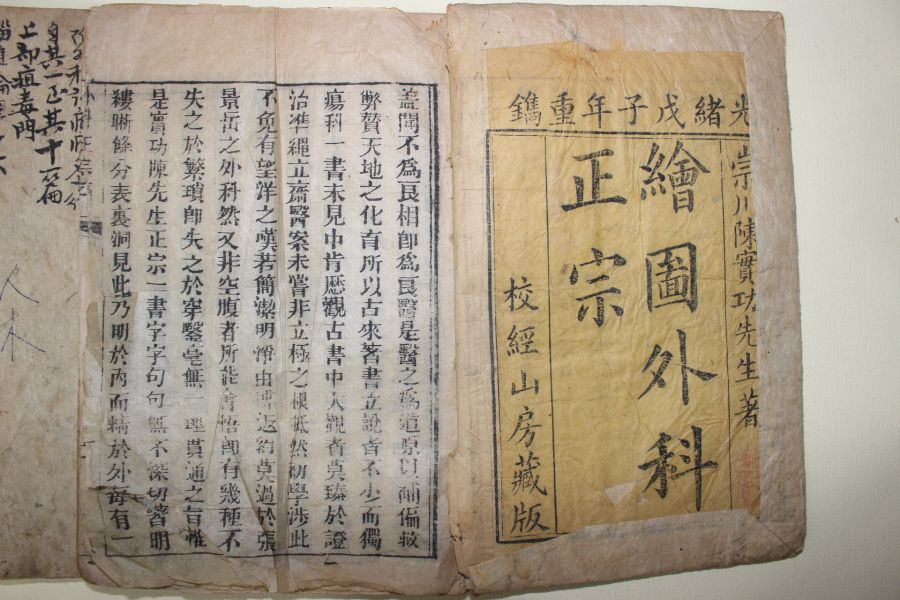 光緒戊子年重鐫
崇川陳實功先生著
繪圖外科
正宗
校經山房藏版
蓋聞不爲良相卽爲良醫是醫之爲道原以補偏救
弊贊天地之化育所以古來著書立說者不少而獨
瘍科一書未見中肯歷觀古書中大觀者莫臻於證
治准繩立齋醫案未嘗非立極之模抵然初學涉此
不免有望洋之嘆若簡潔明淨由博返約莫過於張
景岳之外科然又非空腹者所能會悟卽有幾種不
失之於繁瑣卽失之於穿鑿毫無一理莫通之旨惟
是實功陳先生正宗一書字字句句無不深切著明
縷晰條分表裏洞見此乃明於內而精於外每有一
自其一正其十六篇
上部疽毒門